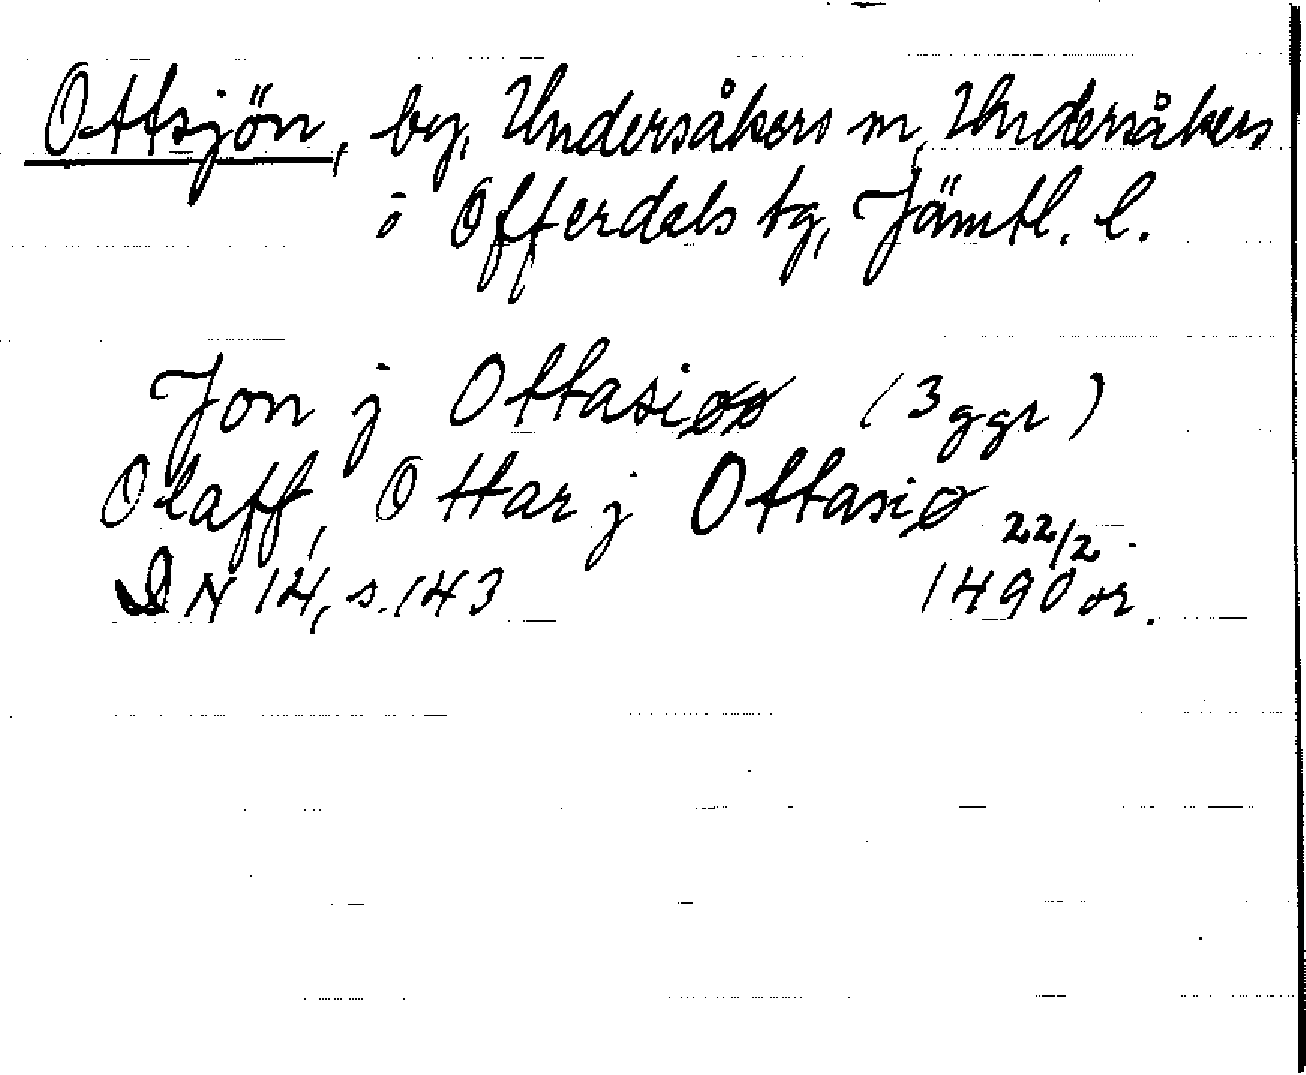 Ottsjön, by, Undersåkers sn, Undersåkers
o Offerdals tg, Jämtl. l.
Jon j Ottasiøø (3 ggr)
Olaff, Ottar j Ottasiø
22/2
DN 14, s. 143 1490 or.